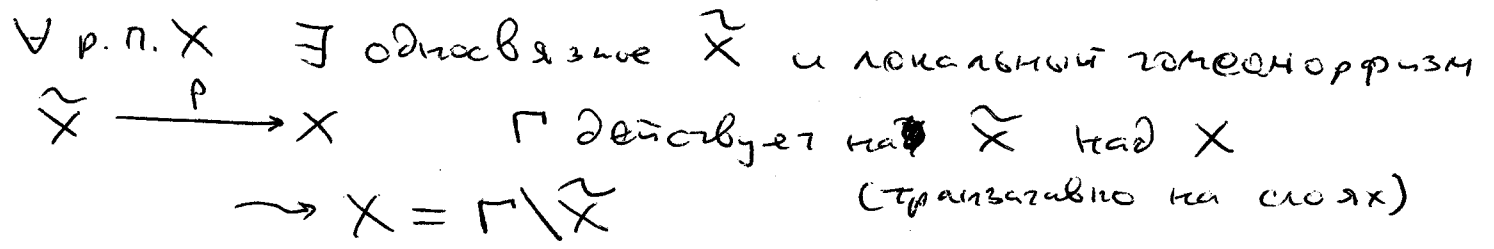 ∀ р.п. X ∃ односвязное X̃ и локальный гомеоморфизм
X̃ —p→ X Γ действует на X̃ над X
⇝ X = Γ\X̃ (транзитивно на слоях)